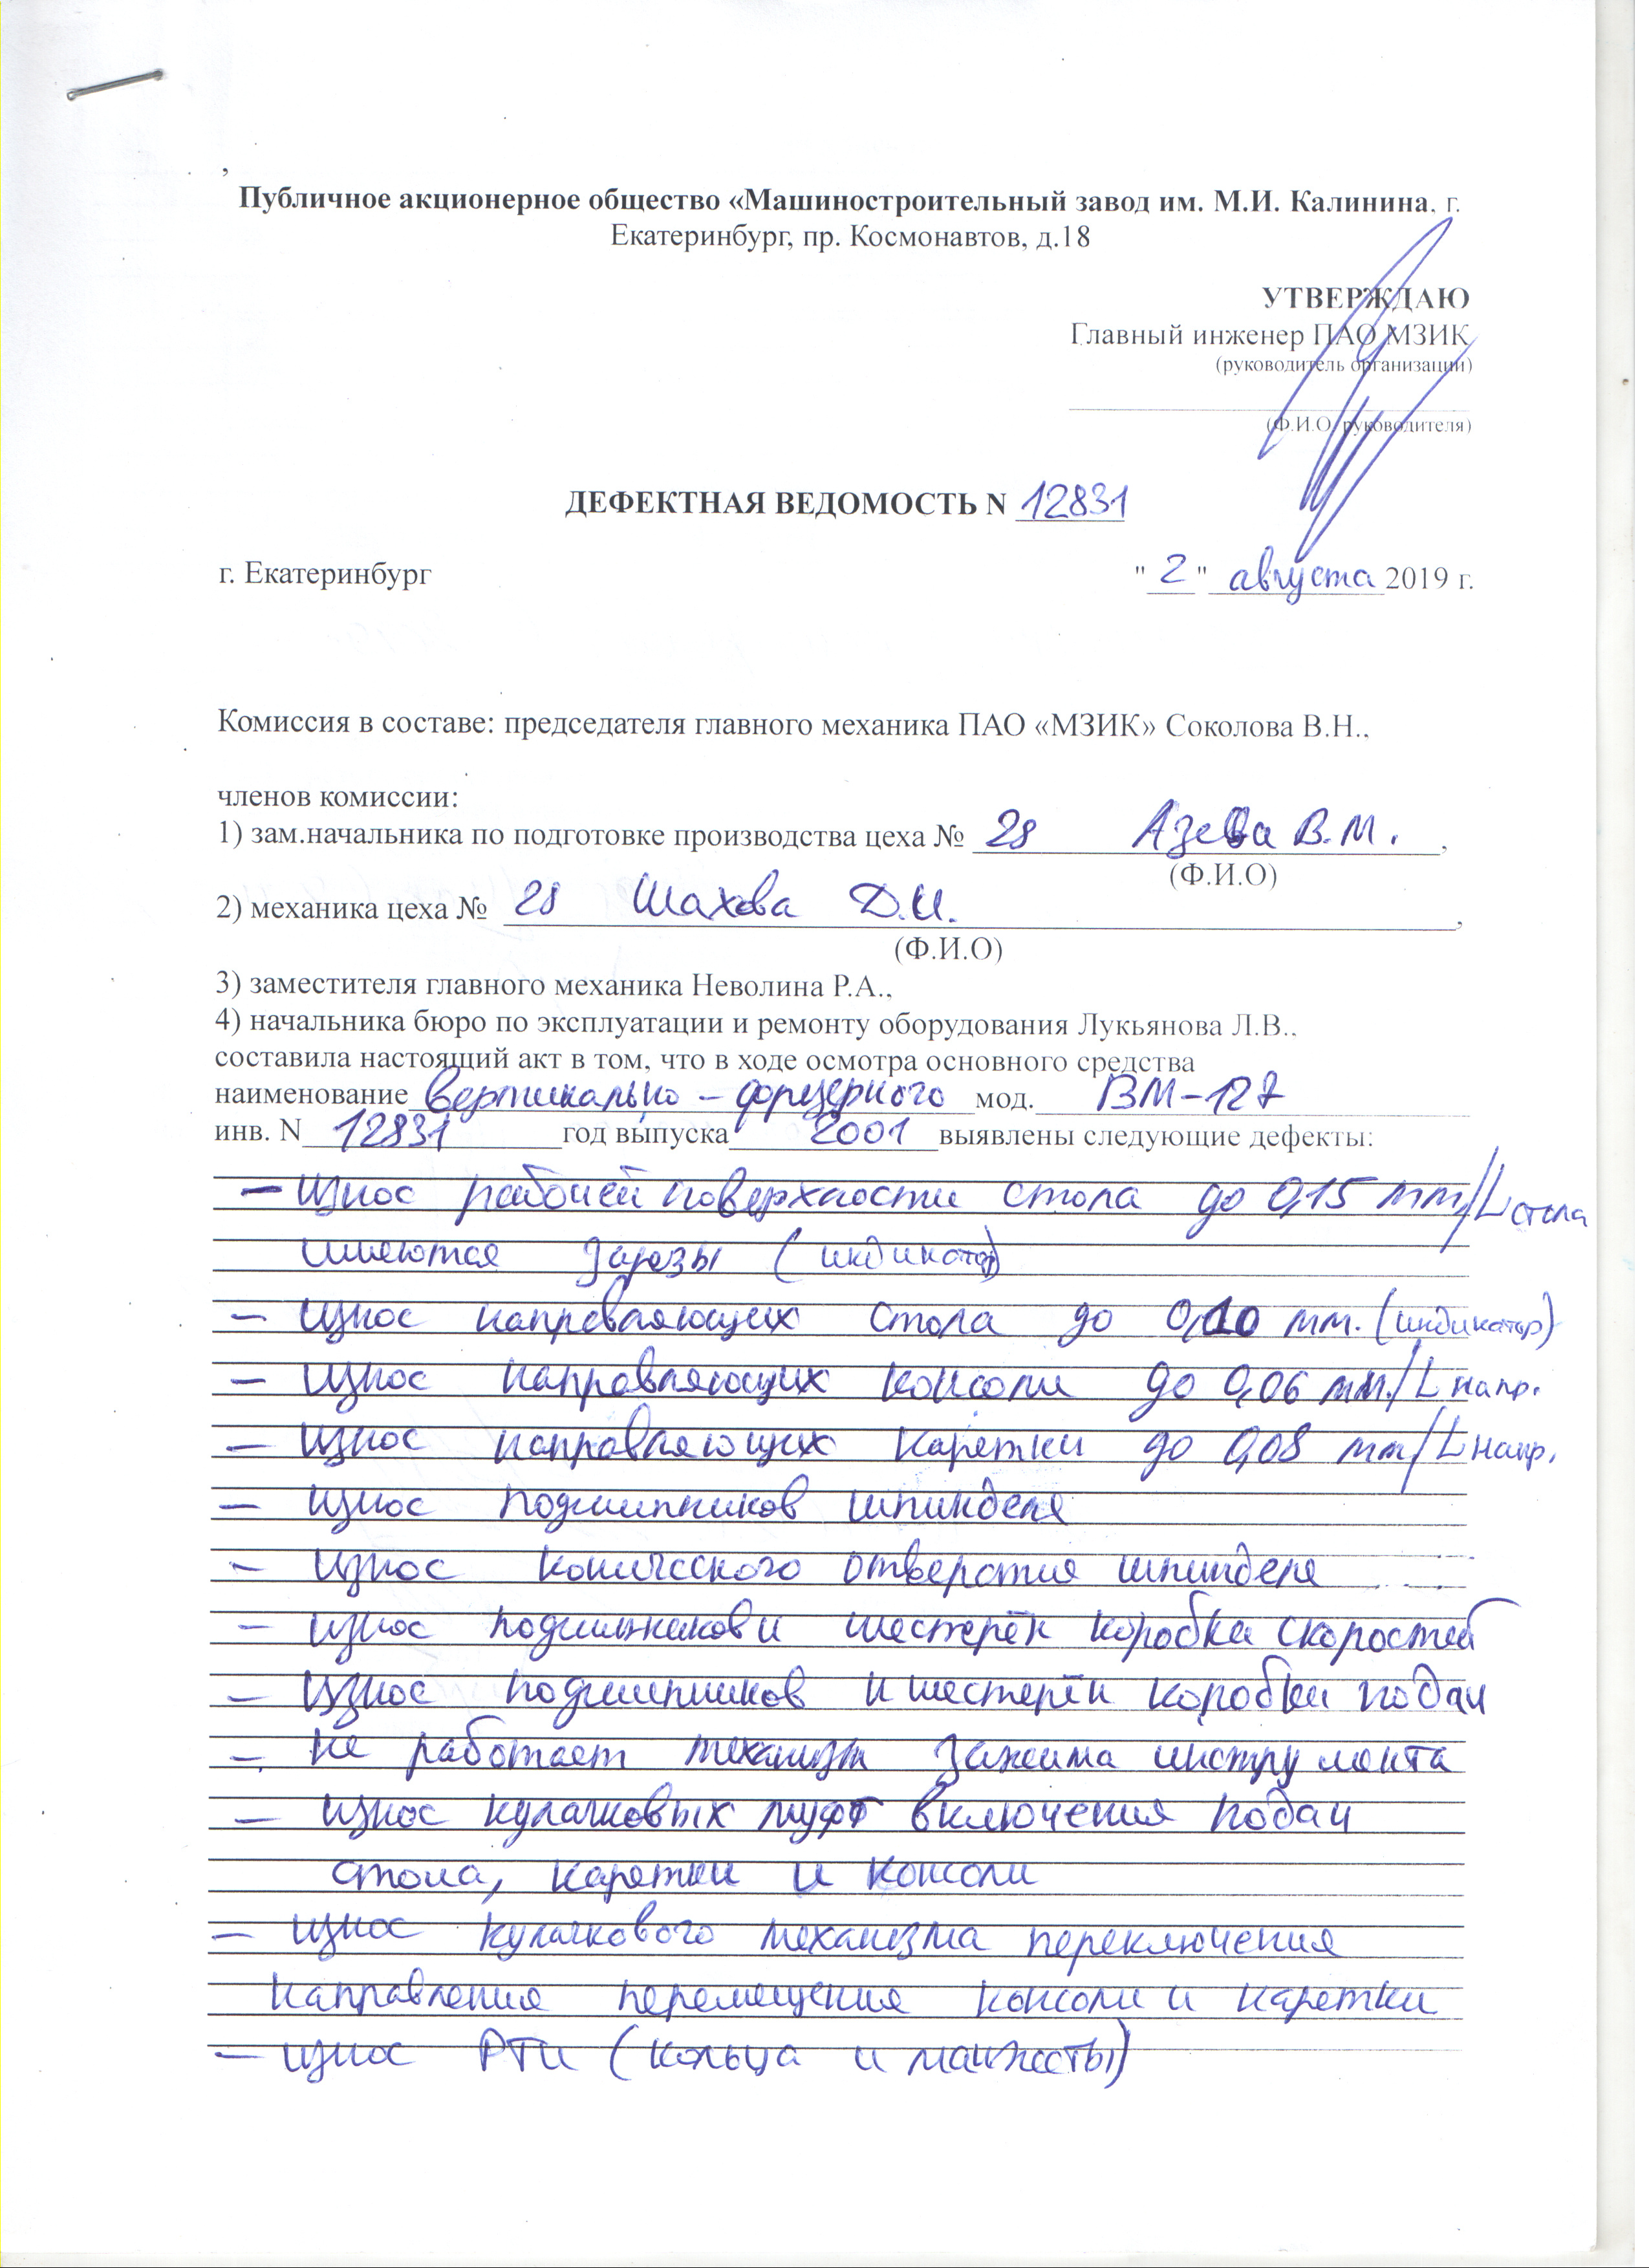 Публичное акционерное общество «Машиностроительный завод им. М.И. Калинина, г.
Екатеринбург, пр. Космонавтов, д.18
УТВЕРЖДАЮ
Главный инженер ПАО МЗИК
(руководитель организации)
(Ф.И.О. руководителя)
ДЕФЕКТНАЯ ВЕДОМОСТЬ N 12831
г. Екатеринбург "2" августа 2019 г.
Комиссия в составе: председателя главного механика ПАО «МЗИК» Соколова В.Н.,
членов комиссии:
1) зам.начальника по подготовке производства цеха № 28 Азева В.М.,
(Ф.И.О)
2) механика цеха № 28 Шахова Д.И.,
(Ф.И.О)
3) заместителя главного механика Неволина Р.А.,
4) начальника бюро по эксплуатации и ремонту оборудования Лукьянова Л.В.,
составила настоящий акт в том, что в ходе осмотра основного средства
наименование вертикально - фрезерного мод. ВМ-127
инв. N 12831 год выпуска 2001 выявлены следующие дефекты:
- Износ рабочей поверхности стола до 0,15 мм/L стола
имеются зарезы (индикатор)
- Износ направляющих стола до 0,10 мм. (индикатор)
- Износ направляющих консоли до 0,06 мм./L напр.
- Износ направляющих каретки до 0,08 мм/L напр.
- износ подшипников шпинделя
- износ конического отверстия шпинделя
- износ подшипников и шестерён коробка скоростей
- Износ подшипников и шестерён коробки подач
- Не работает механизм зажима инструмента
- износ кулачковых муфт включения подач
стола, каретки и консоли
- износ кулачкового механизма переключения
направления перемещения консоли и каретки
- износ РТИ (кольца и манжеты)